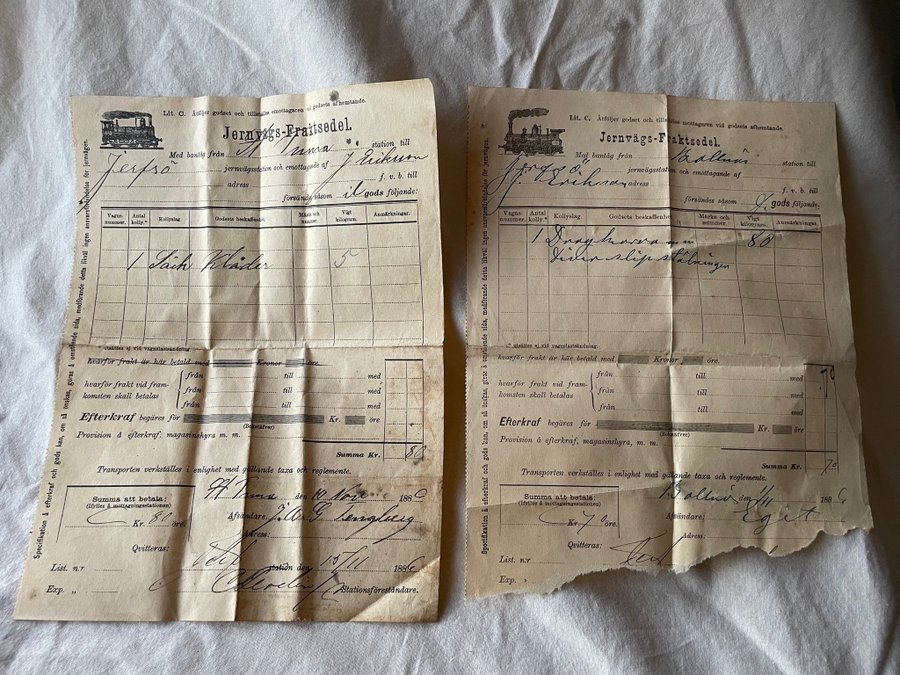 Lit. C. Åtföljer godset och tillställes emottagaren vid godsets afhemtande.
Jernvägs-Fraktsedel.
Med bantåg från St Tuna station till
Jerfsö jernvägsstation och emottagande af J. Erikson
adress f. v. b. till
försändes såsom il gods följande:
Vagns nummer. Antal kolly.* Kollyslag. Godsets beskaffenhet. Märke och nummer. Vigt kilogram. Anmärkningar.
1 Säck Kläder 5
* utsättes ej vid vagnslastsändning
hvarför frakt är här betald med Kronor öre.
från till med
hvarför frakt vid framkomsten skall betalas från till med
från till med
Efterkraf begäres för Kr. öre.
(Bokstäfver)
Provision å efterkraf, magasinshyra m. m.
Summa Kr. 80
Transporten verkställes i enlighet med gällande taxa och reglemente.
St Tuna den 10 Nov 188
Summa att betala:
(Ifylles å mottagningsstationen)
Kr. 80 öre.
Afsändare:
Adress:
Qvitteras:
List. n:r station den 15/11 188
Exp. „ Stationsföreståndare.
Specifikation å efterkraf och gods kan, om så önskas, göras å omstående sida, medförande detta likväl ingen ansvarsförbindelse för jernvägen.
Lit. C. Åtföljer godset och tillställes emottagaren vid godsets afhemtande.
Jernvägs-Fraktsedel.
Med bantåg från Bollnäs station till
Jerfsö jernvägsstation och emottagande af
J. Erikson adress f. v. b. till
försändes såsom gods följande:
Vagns nummer. Antal kolly.* Kollyslag. Godsets beskaffenhet. Märke och nummer. Vigt kilogram. Anmärkningar.
1 80
* utsättes ej vid vagnslastsändning
hvarför frakt är här betald med Kronor öre.
från till med 70
hvarför frakt vid framkomsten skall betalas från till med
från till med
Efterkraf begäres för Kr. öre.
(Bokstäfver)
Provision å efterkraf, magasinshyra m. m.
Summa Kr. 70
Transporten verkställes i enlighet med gällande taxa och reglemente.
Bollnäs den 188
Summa att betala:
(Ifylles å mottagningsstationen)
Kr. 70 öre.
Afsändare:
Adress:
Qvitteras:
List. n:r
Exp. „
Specifikation å efterkraf och gods kan, om så önskas, göras å omstående sida, medförande detta likväl ingen ansvarsförbindelse för jernvägen.